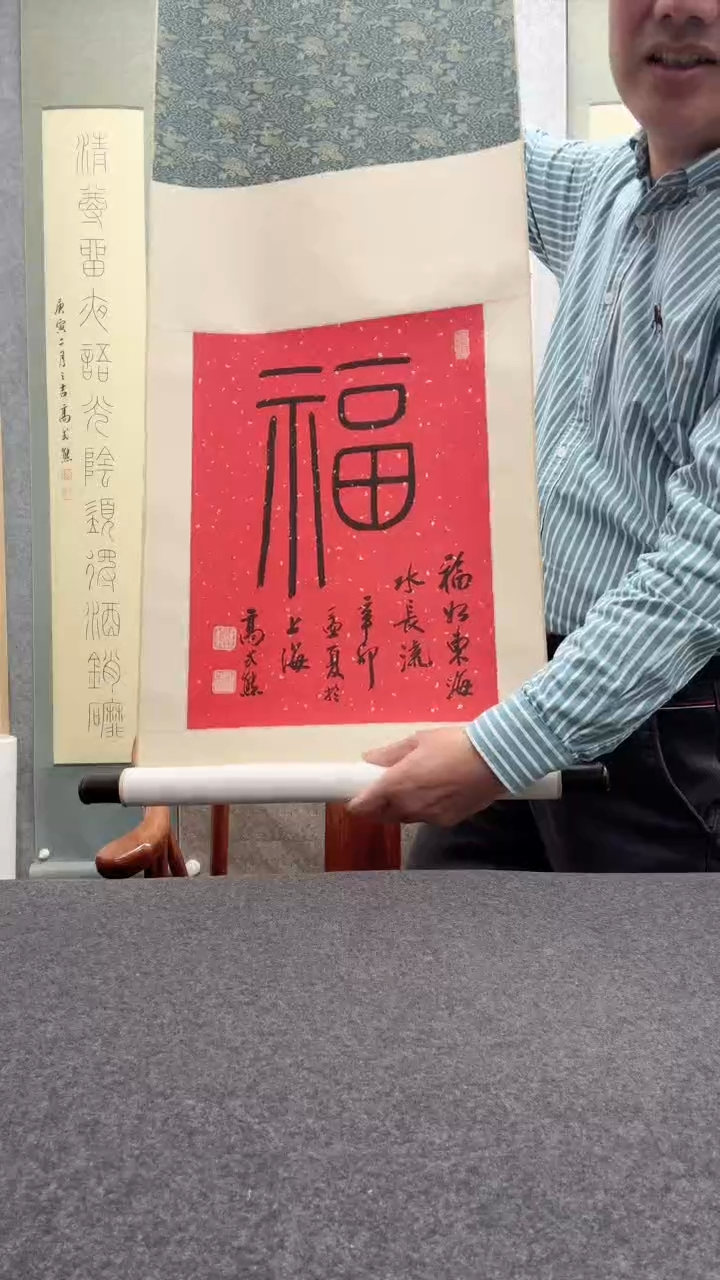 福
福如東海
水長流
辛卯
孟夏於
上海
高式熊
清尊留夜語光陰須得酒銷磨
庚寅二月之吉高式熊